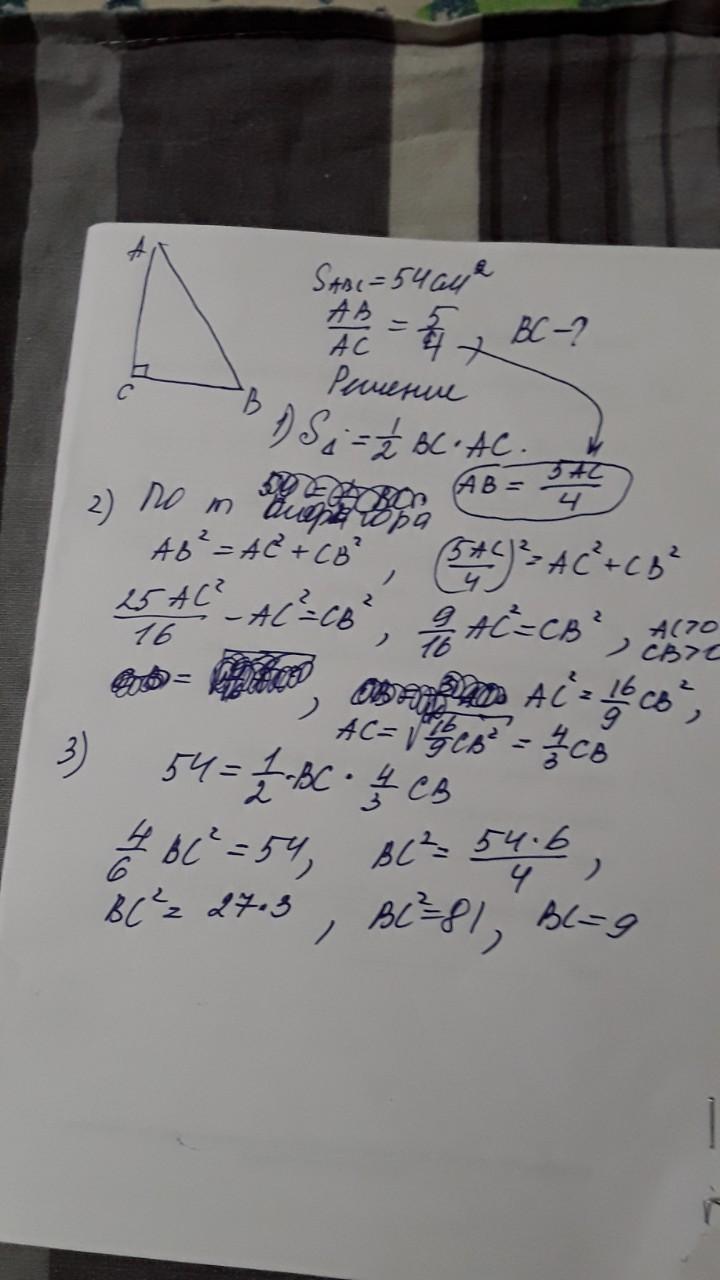 A
C
B
S ABC = 54 см²
AB/AC = 5/4, BC - ?
Решение
1) S△ = 1/2 BC · AC.
AB = 5AC/4
2) По т Пифагора
AB² = AC² + CB², (5AC/4)² = AC² + CB²
25AC²/16 - AC² = CB², 9/16 AC² = CB², AC>0
CB>0
AC² = 16/9 CB²,
AC = √16/9 CB² = 4/3 CB
3) 54 = 1/2 · BC · 4/3 CB
4/6 BC² = 54, BC² = 54·6/4,
BC² = 27·3, BC² = 81, BC = 9